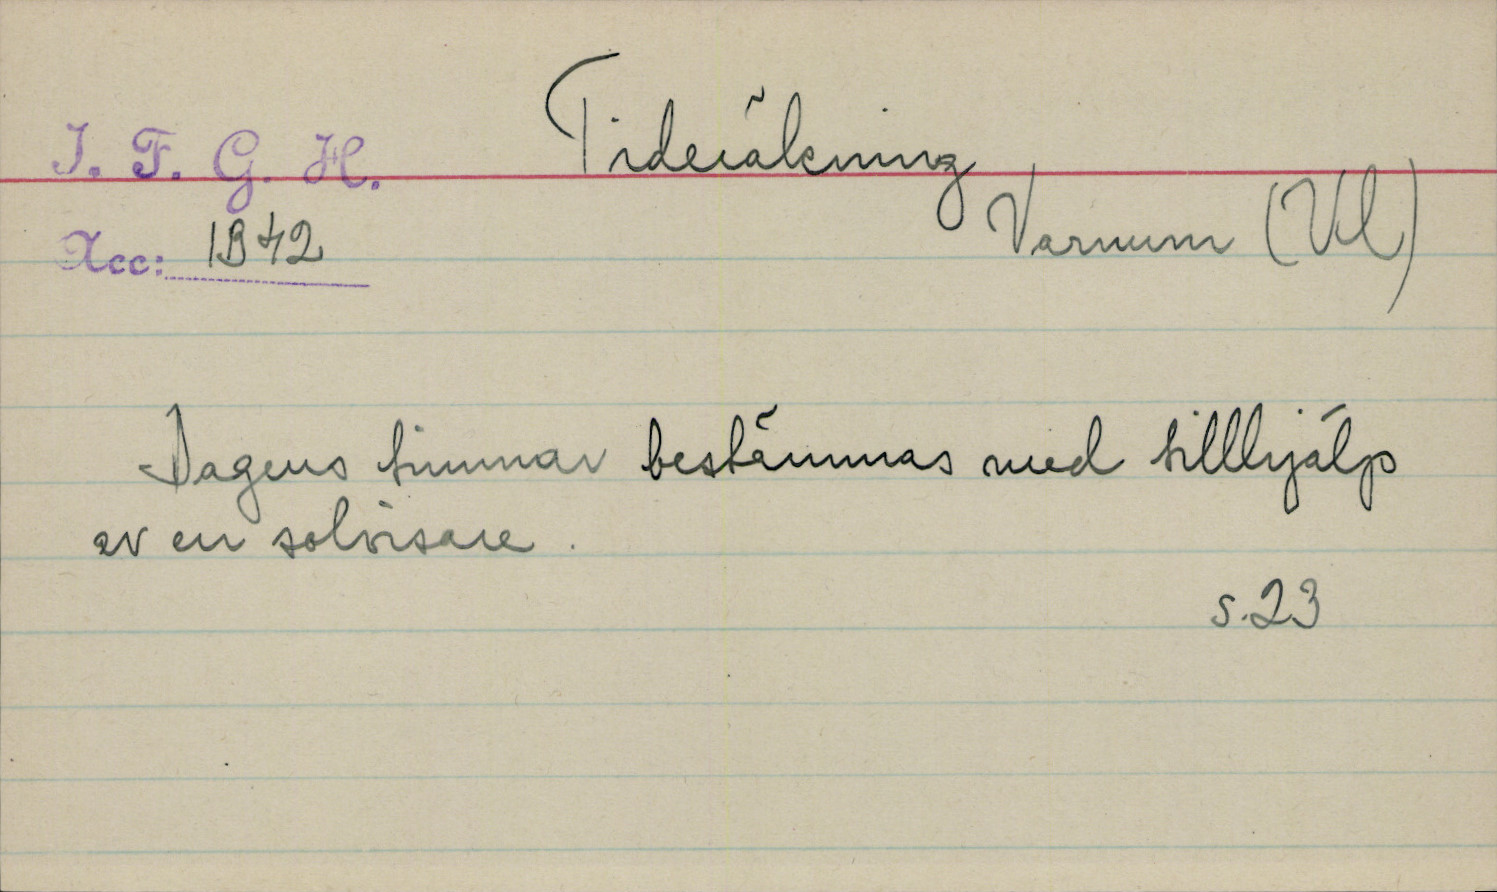 Tideräkning
I. F. G. H.
Varnum (Vl)
Acc: 1342
Dagens timmar bestämmas med tillhjälp
av en solvisare.
s. 23